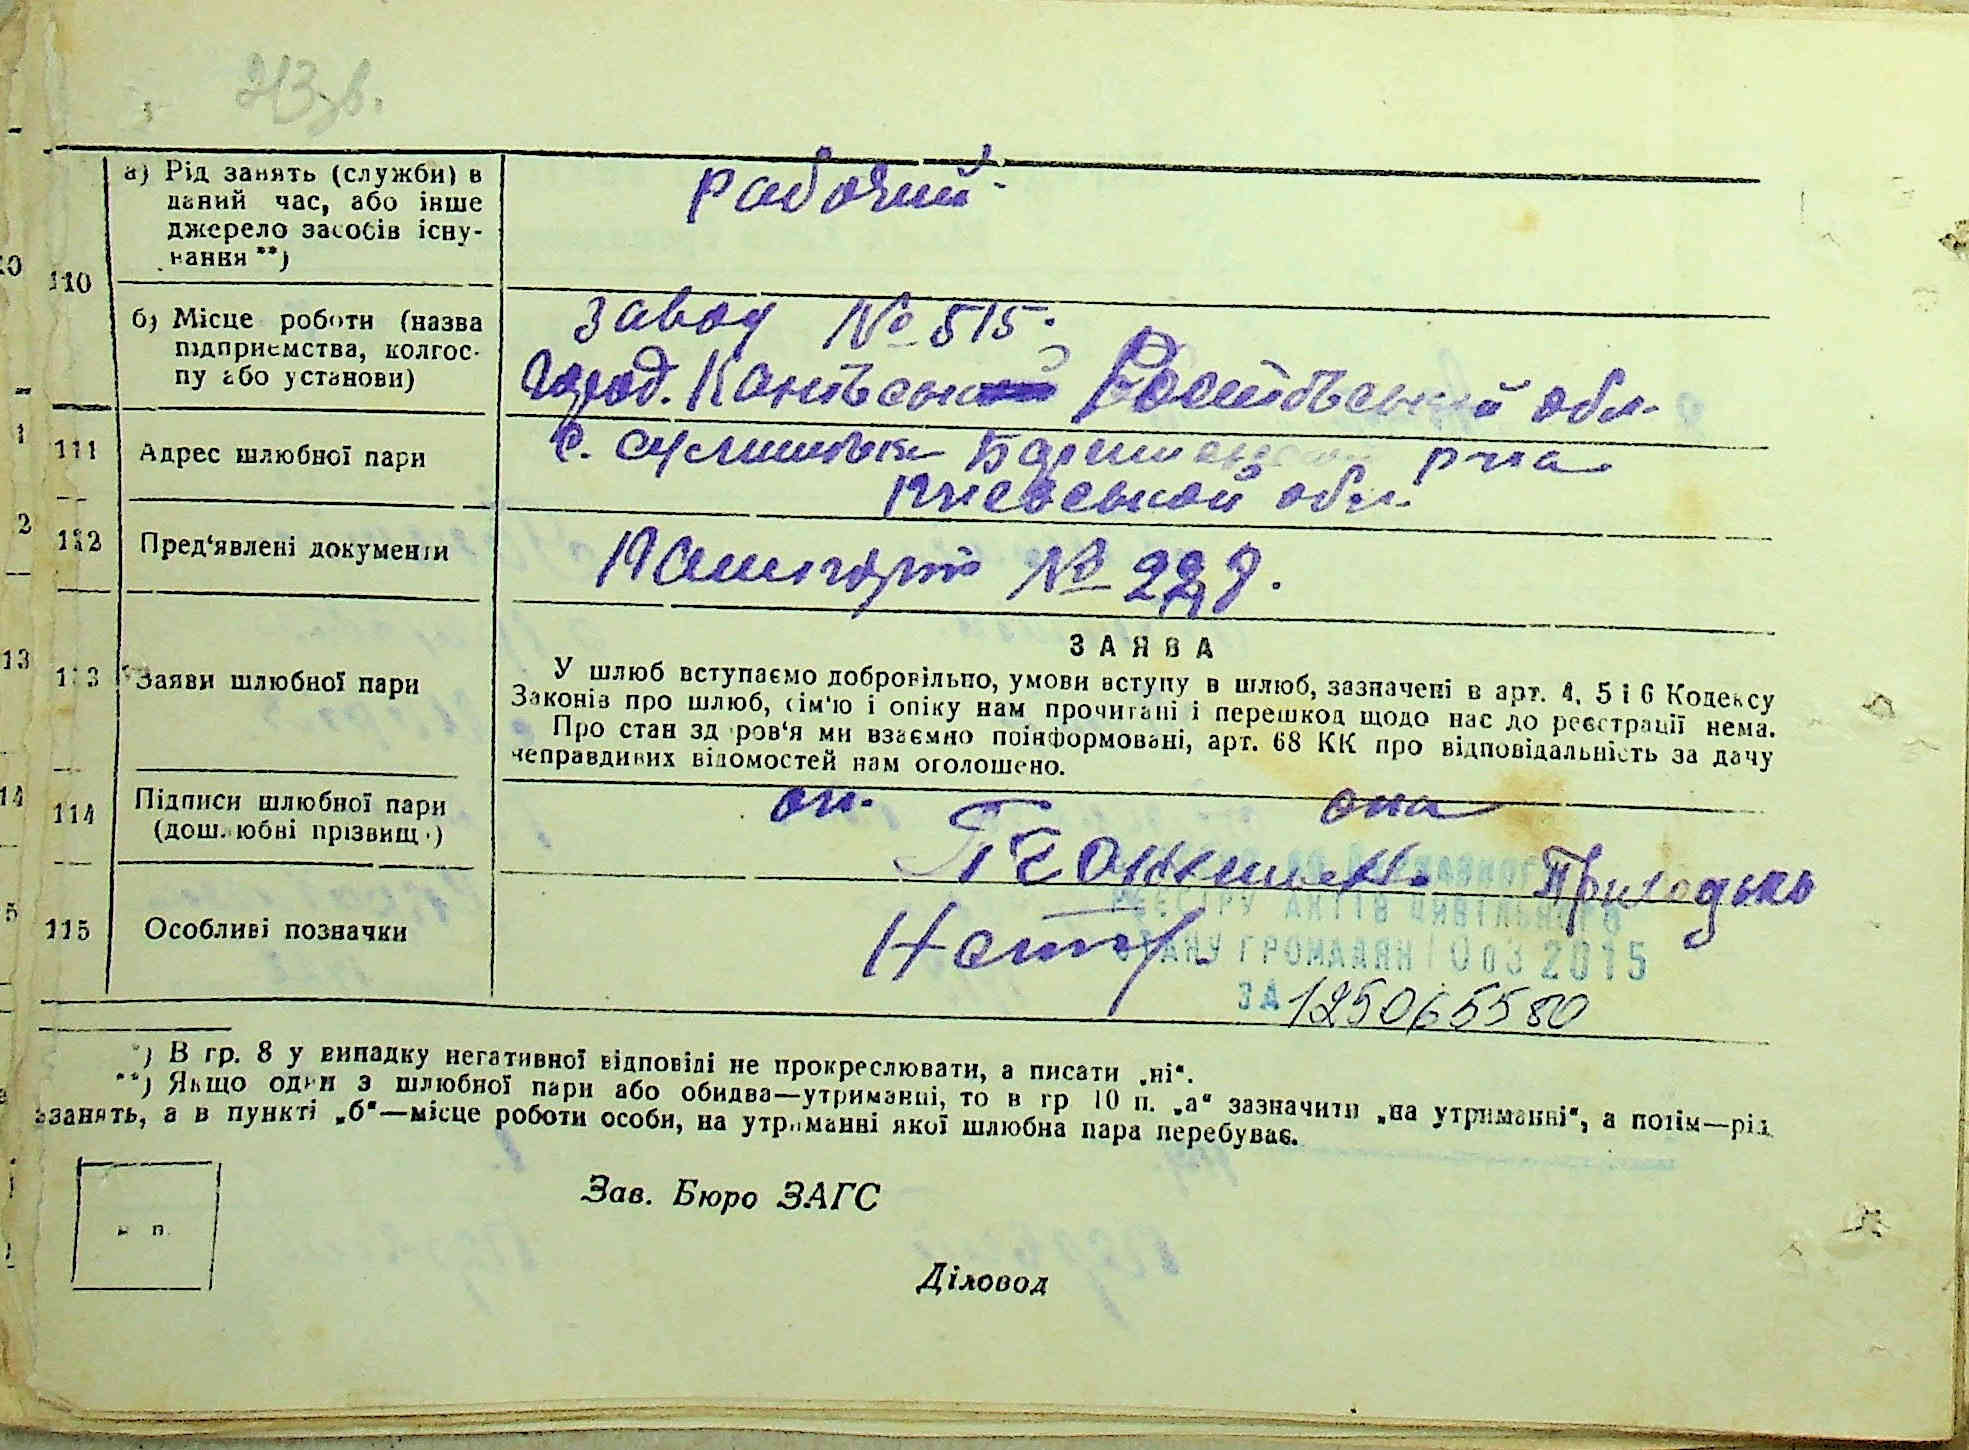 213 зв.
110
а) Рід занять (служби) в
даний час, або інше
джерело засобів існу-
вання **)
рабочий
б) Місце роботи (назва
підприємства, колгос-
пу або установи)
завод № 515.
город. обл.
111
Адрес шлюбної пари
с. Сулимовка р-на
Киевской обл.
112
Пред'явлені документи
№
113
Заяви шлюбної пари
ЗАЯВА
У шлюб вступаємо добровільно, умови вступу в шлюб, зазначені в арт. 4, 5 і 6 Кодексу
Законів про шлюб, сім'ю і опіку нам прочитані і перешкод щодо нас до реєстрації нема.
Про стан здоров'я ми взаємно поінформовані, арт. 68 КК про відповідальність за дачу
неправдивих відомостей нам оголошено.
114
Підписи шлюбної пари
(дошлюбні прізвища)
он. она
Приходько
115
Особливі позначки
ДЕРЖАВНОГО
РЕЄСТРУ АКТІВ ЦИВІЛЬНОГО
СТАНУ ГРОМАДЯН 10 03 2015
ЗА 125065580
*) В гр. 8 у випадку негативної відповіді не прокреслювати, а писати „ні“.
**) Якщо один з шлюбної пари або обидва—утриманці, то в гр 10 п. „а“ зазначити „на утриманні“, а потім—рід
занять, а в пункті „б“—місце роботи особи, на утриманні якої шлюбна пара перебуває.
Зав. Бюро ЗАГС
м п.
Діловод